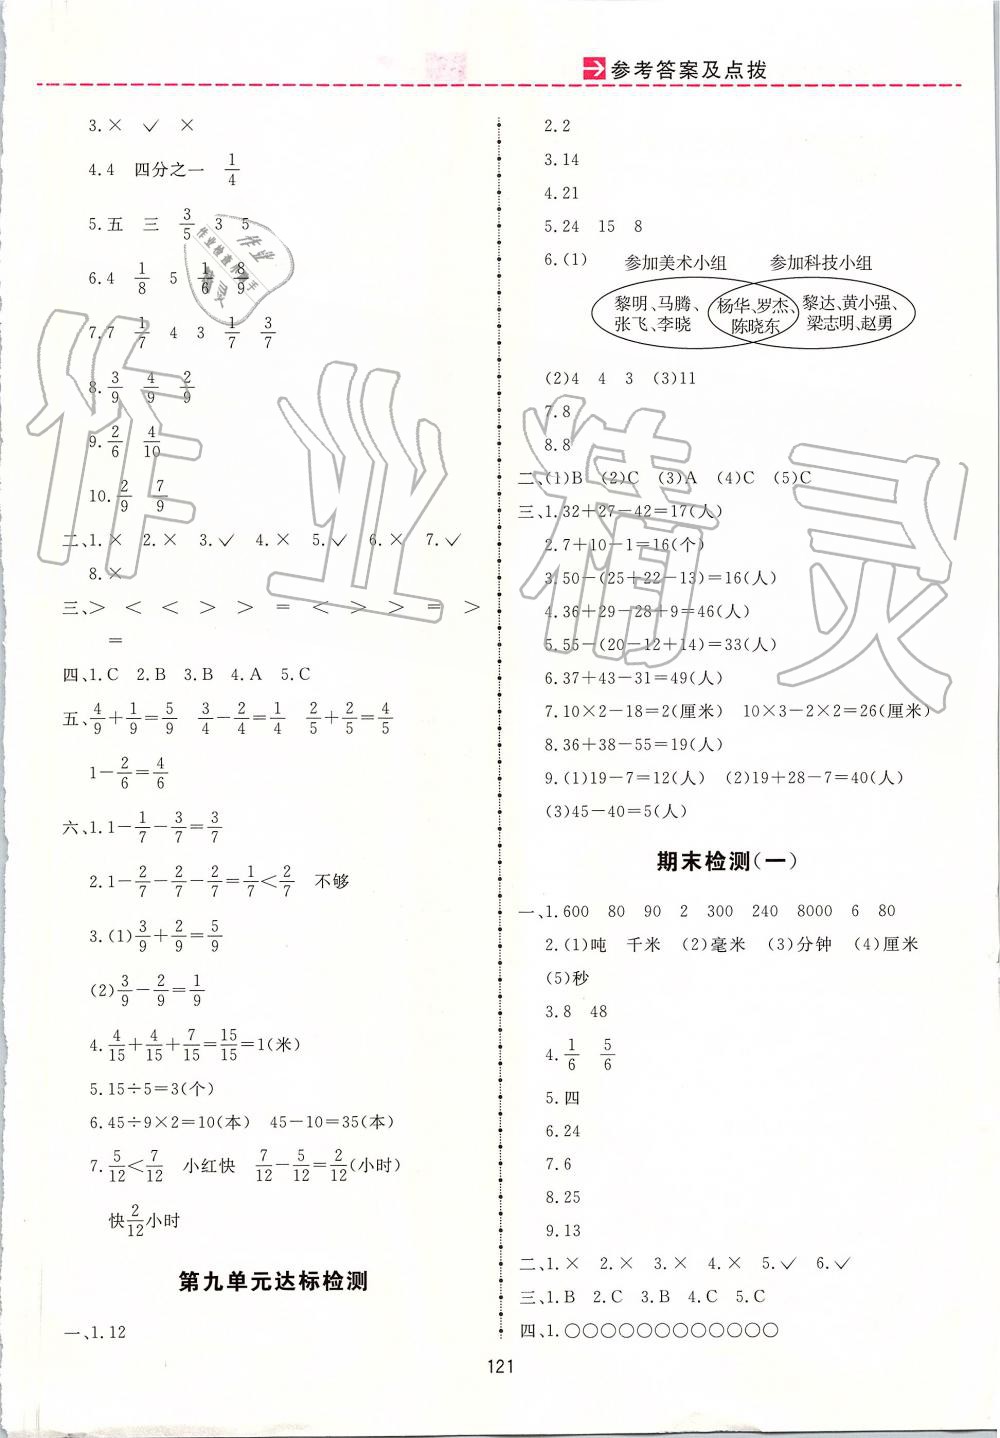 参考答案及点拨
3.× ✓ ×
4.4 四分之一 1/4
5.五 三 3/5 3 5
6.4 1/8 5 1/6 8/9
7.7 1/7 4 3 1/7 3/7
8.3/9 4/9 2/9
9.2/6 4/10
10.2/9 7/9
二、1.× 2.× 3.✓ 4.× 5.✓ 6.× 7.✓
8.×
三、＞ ＜ ＜ ＞ ＞ ＝ ＜ ＞ ＞ ＝ ＞
＝
四、1.C 2.B 3.B 4.A 5.C
五、4/9＋1/9＝5/9 3/4－2/4＝1/4 2/5＋2/5＝4/5
1－2/6＝4/6
六、1.1－1/7－3/7＝3/7
2.1－2/7－2/7－2/7＝1/7＜2/7 不够
3.(1)3/9＋2/9＝5/9
(2)3/9－2/9＝1/9
4.4/15＋4/15＋7/15＝15/15＝1(米)
5.15÷5＝3(个)
6.45÷9×2＝10(本) 45－10＝35(本)
7.5/12＜7/12 小红快 7/12－5/12＝2/12(小时)
快2/12小时
第九单元达标检测
一、1.12
2.2
3.14
4.21
5.24 15 8
6.(1) 参加美术小组 参加科技小组
黎明、马腾、 杨华、罗杰、 黎达、黄小强、
张飞、李晓 陈晓东 梁志明、赵勇
(2)4 4 3 (3)11
7.8
8.8
二、(1)B (2)C (3)A (4)C (5)C
三、1.32＋27－42＝17(人)
2.7＋10－1＝16(个)
3.50－(25＋22－13)＝16(人)
4.36＋29－28＋9＝46(人)
5.55－(20－12＋14)＝33(人)
6.37＋43－31＝49(人)
7.10×2－18＝2(厘米) 10×3－2×2＝26(厘米)
8.36＋38－55＝19(人)
9.(1)19－7＝12(人) (2)19＋28－7＝40(人)
(3)45－40＝5(人)
期末检测(一)
一、1.600 80 90 2 300 240 8000 6 80
2.(1)吨 千米 (2)毫米 (3)分钟 (4)厘米
(5)秒
3.8 48
4.1/6 5/6
5.四
6.24
7.6
8.25
9.13
二、1.× 2.× 3.× 4.× 5.✓ 6.✓
三、1.B 2.C 3.B 4.C 5.C
四、1.○○○○○○○○○○○○
121
作业精灵